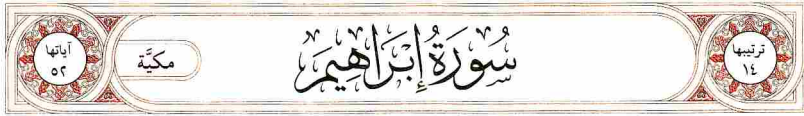 ترتيبها
١٤
سُورَةُ إِبْرَاهِيمَ
مكيَّة
آياتها
٥٢